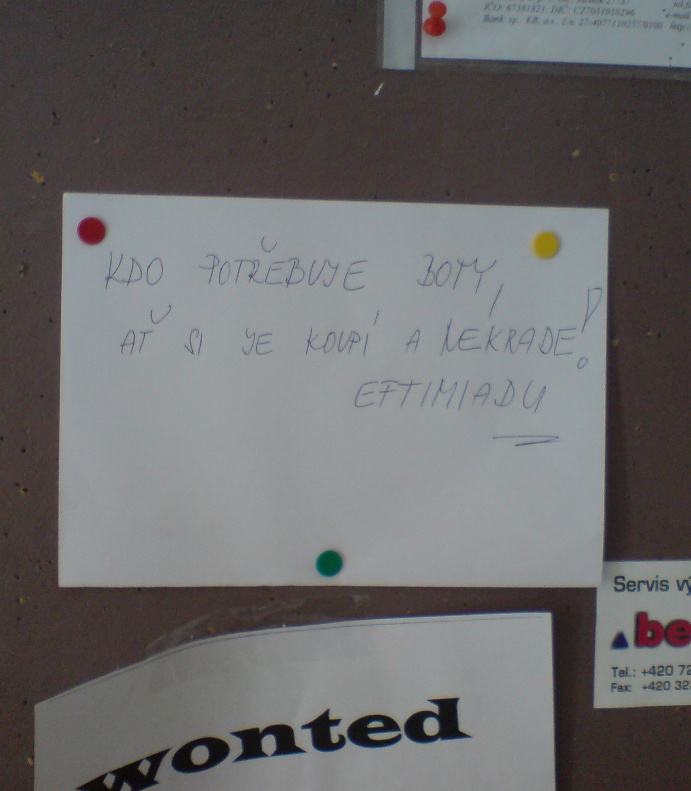 IČO: 67381821, DIČ: CZ7031010296
Bank sp. KB, a.s.
KDO POTŘEBUJE BOTY,
AŤ SI JE KOUPÍ A NEKRADE!
EFTIMIADU
Servis vý
be
Tel.: +420 72
Fax: +420 32
wonted